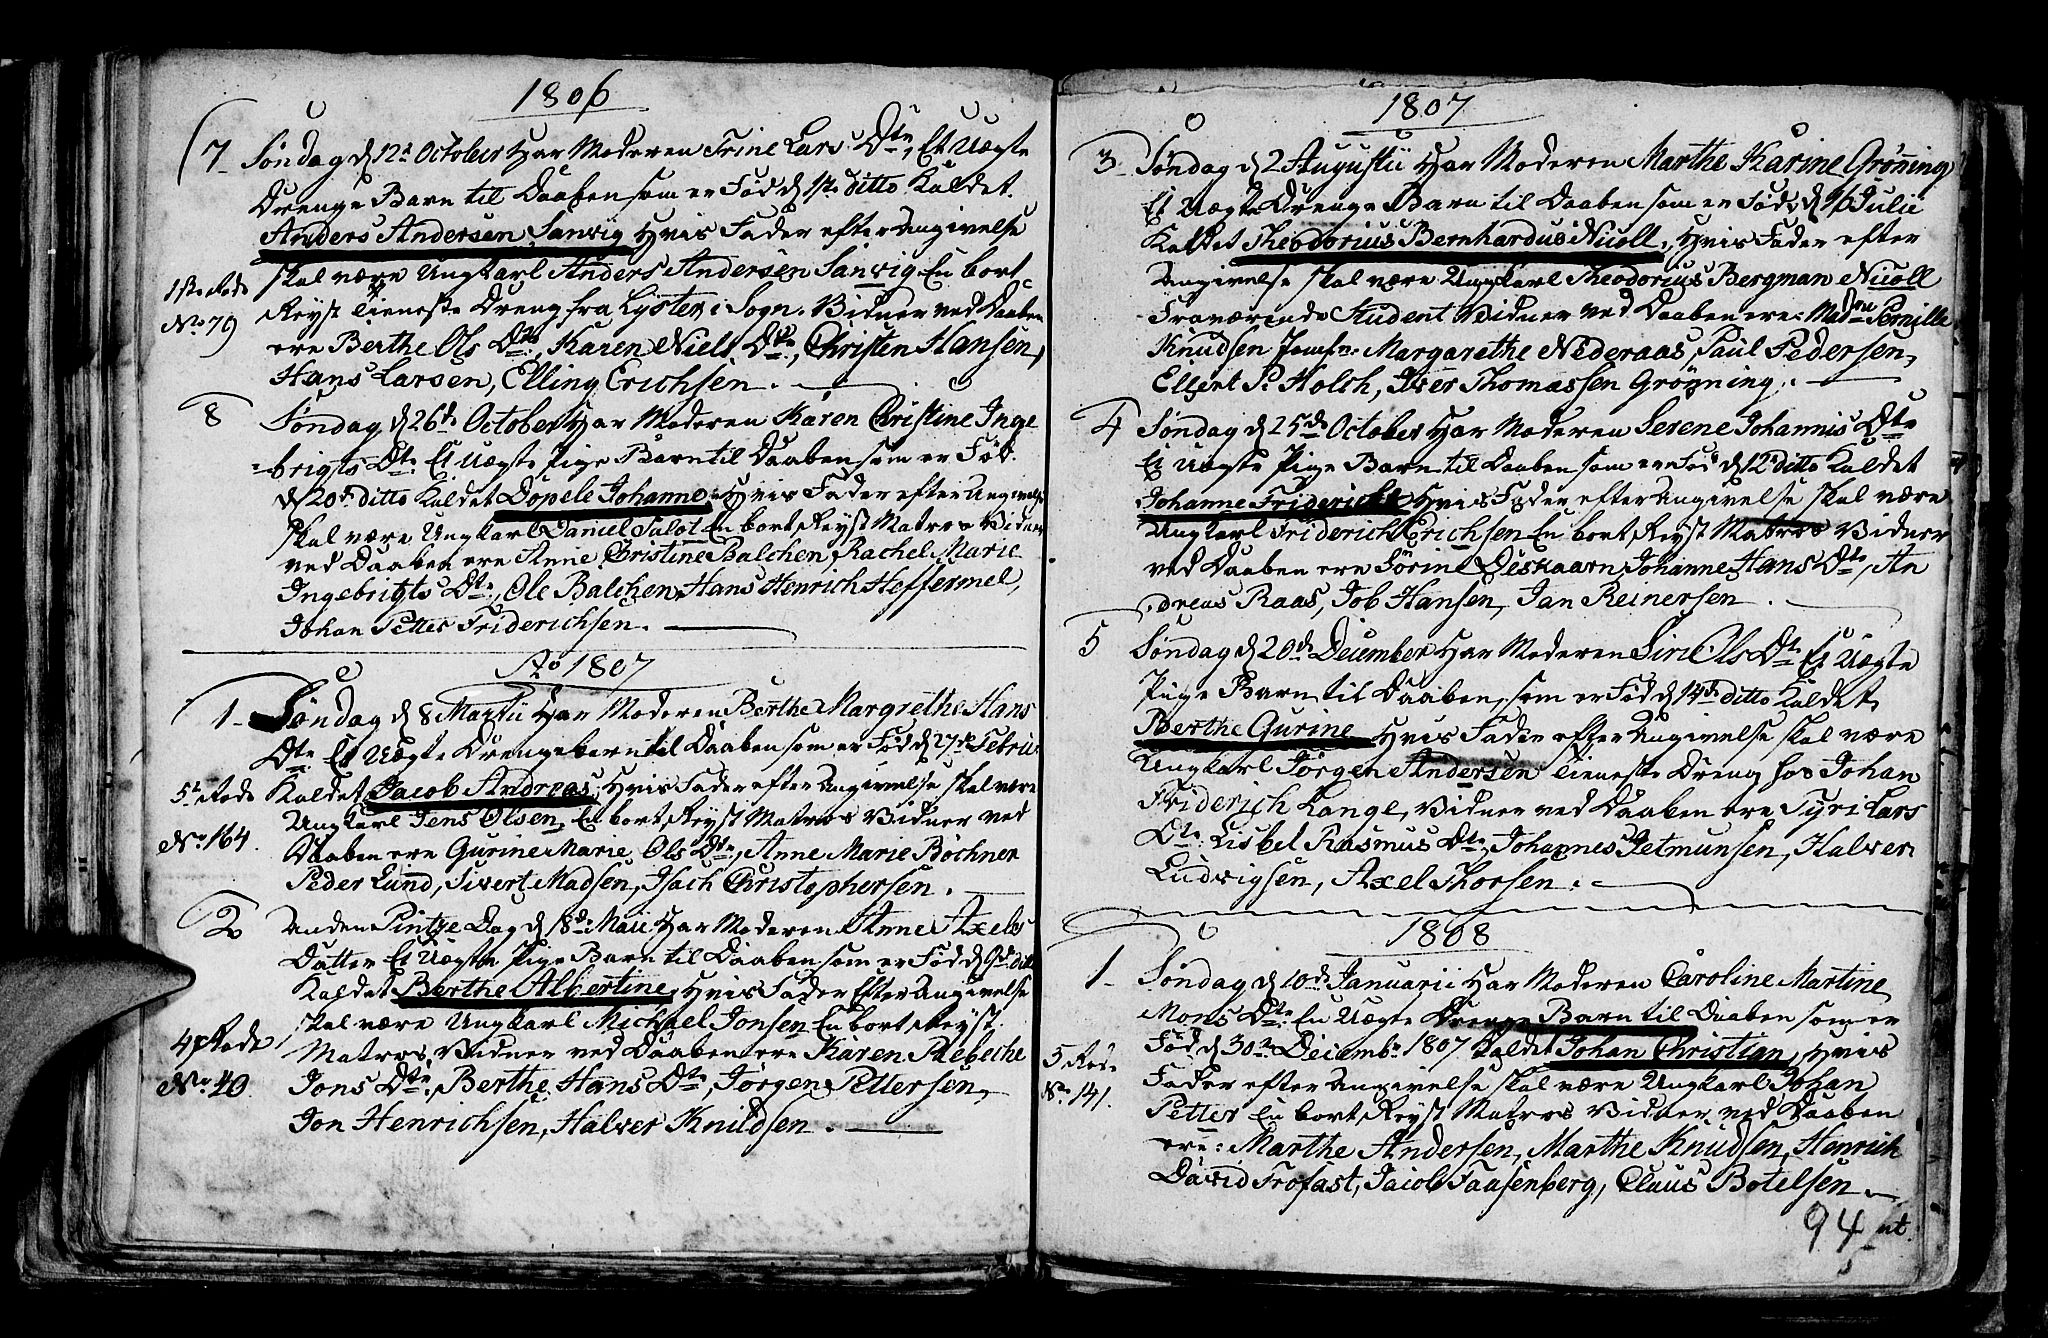 1806
7 Søndag d 12te October Har Moderen Trine Lars Dtr, Et Uægte
Drenge Barn til Daaben som er Fød d 1ste ditto Kaldet
Anders Andersen Sanwig Hvis Fader efter Angivelse
skal være Ungkarl Anders Andersen Sanwig En bort
1ste Rode
Reyst Tieneste Dreng fra Lyster i Sogn. Vidner ved Daaben
No 79
ere Berthe Ols Dtr, Karen Niels Dtr, Christen Hansen,
Hans Larsen, Elling Erichsen.
8 Søndag d 26de October Har Moderen Karen Christine Inge
brigts Dtr Et Uægte Pige Barn til Daaben som er Fød
d 20de ditto Kaldet Dopele Johanne Hvis Fader efter Angivelse
skal være Ungkarl Daniel Salot En bort Reyst Matros Vidner
ved Daaben ere Anne Christine Balchen, Rachel Marie
Ingebrigts Dtr, Ole Balchen, Hans Henrich Hoffermel,
Johan Petter Friderichsen.
Ao 1807
1 Søndag d 8 Martii Har Moderen Berthe Margrethe Hans
Dtr Et Uægte Drengebarn til Daaben som er Fød d 27de Febru
5te Rode
Kaldet Jacob Andreas, Hvis Fader efter Angivelse skal være
Ungkarl Jens Olsen, En bort Reyst Matros Vidner ved
No 164.
Daaben ere Gurine Marie Ols Dtr, Anne Marie Bøchner
Peder Lund, Sivert Madsen, Isach Christophersen.
2 Anden Pintze Dag d 18de Maii Har Moderen Anne Axels
Datter Et Uægte Pige Barn til Daaben som er Fød d 9de ditto
Kaldet Berthe Albertine, Hvis Fader Efter Angivelse
skal være Ungkarl Michael Jonsen En bort Reyst
4 Rode
Matros, Vidner ved Daaben ere Karen Rebeche
No 40.
Jons Dtr, Berthe Hans Dtr, Jørgen Pettersen,
Jon Henrichsen, Halver Knudsen.
1807
3 Søndag d 2 Augustii Har Moderen Marthe Karine Grønning
Et Uægte Drenge Barn til Daaben som er Fød d 16 Julii
Kaldet Theodorius Bernhardus Nicoll, Hvis Fader efter
Angivelse skal være Ungkarl Theodorius Bergman Nicoll
Fraværende Student Vidner ved Daaben ere: Madme Pernille
Knudsen Jomfr: Margarethe Nideraas, Paul Pedersen,
Ellert P. Holch, Iver Thomassen Grønning.
4 Søndag d 25de October Har Moderen Serene Johannis Dtr
Et Uægte Pige Barn til Daaben som er Fød d 12te ditto Kaldet
Johanne Fridericke Hvis Fader efter Angivelse skal være
Ungkarl Friderich Erichsen En bort Reyst Matros Vidner
ved Daaben ere Sørine Deskaarn, Johanne Hans Dtr, An
dreas Raas, Job Hansen, Jan Reinersen.
5 Søndag d 20de December Har Moderen Siri Ols Dtr Et Uægte
Pige Barn til Daaben, som er Fød d 14de ditto Kaldet
Berthe Gurine Hvis Fader efter Angivelse skal være
Ungkarl Jørgen Andersen Tieneste Dreng hos Johan
Friderich Lange, Vidner ved Daaben ere Syri Lars
Dtr. Lisbel Rasmus Dtr, Johannes Jetmunsen, Halver
Ludwigsen, Axel Thorsen.
1808
1 Søndag d 10de Januarii Har Moderen Caroline Martine
Mons Dtr En Uægte Drenge Barn til Daaben som er
Fød d 30te Decembr 1807 Kaldet Johan Christian, Hvis
5 Rode
Fader efter Angivelse skal være Ungkarl Johan
No 141.
Petter En bort Reyst Matros Vidner ved Daaben
ere: Marthe Andersen, Marthe Knudsen, Henrich
David Trofast, Jacob Faasenberg, Claus Botelsen
94